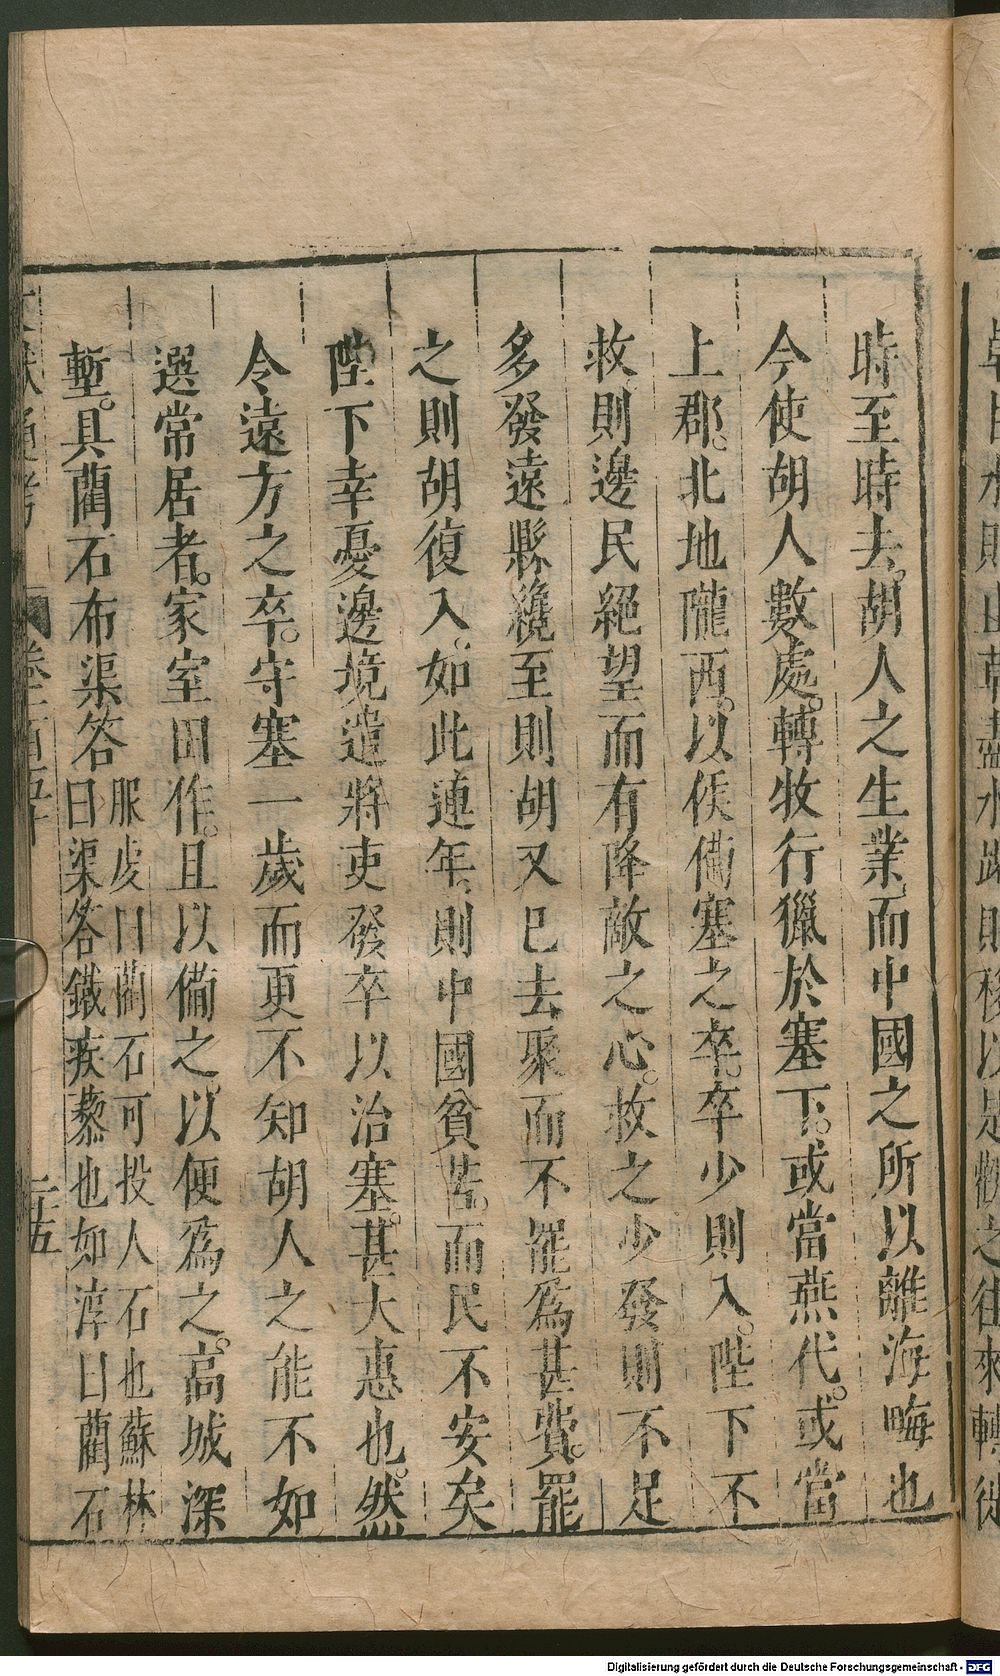 時至時去胡人之生業而中國之所以離海晦也
今使胡人數處轉牧行獵於塞下。或當燕代。或當
上郡。北地隴西。以候備塞之卒。卒少則入。陛下不
救則邊民絕望而有降敵之心。救之少發則不足
多發遠縣纔至則胡又已去聚而不罷為甚費。罷
之則胡復入。如此連年則中國貧苦。而民不安矣
陛下幸憂邊境遣將吏發卒以治塞。甚大惠也。然
令遠方之卒。守塞一歲而更不知胡人之能不如
選常居者。家室田作。且以備之。以便為之。高城深
塹。具藺石布渠答
服虔曰藺石可投人石也蘇林
曰渠答鐵疾藜也如淳曰藺石
文獻通考 卷一百五十 二十五
Digitalisierung gefördert durch die Deutsche Forschungsgemeinschaft - DFG